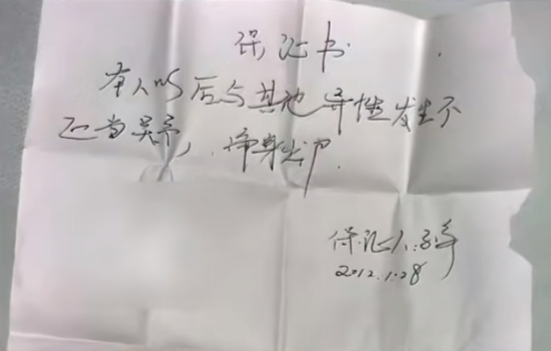 保证书
本人以后与其他异性发生不
正当关系，净身出户.
保证人:
2012.1.28